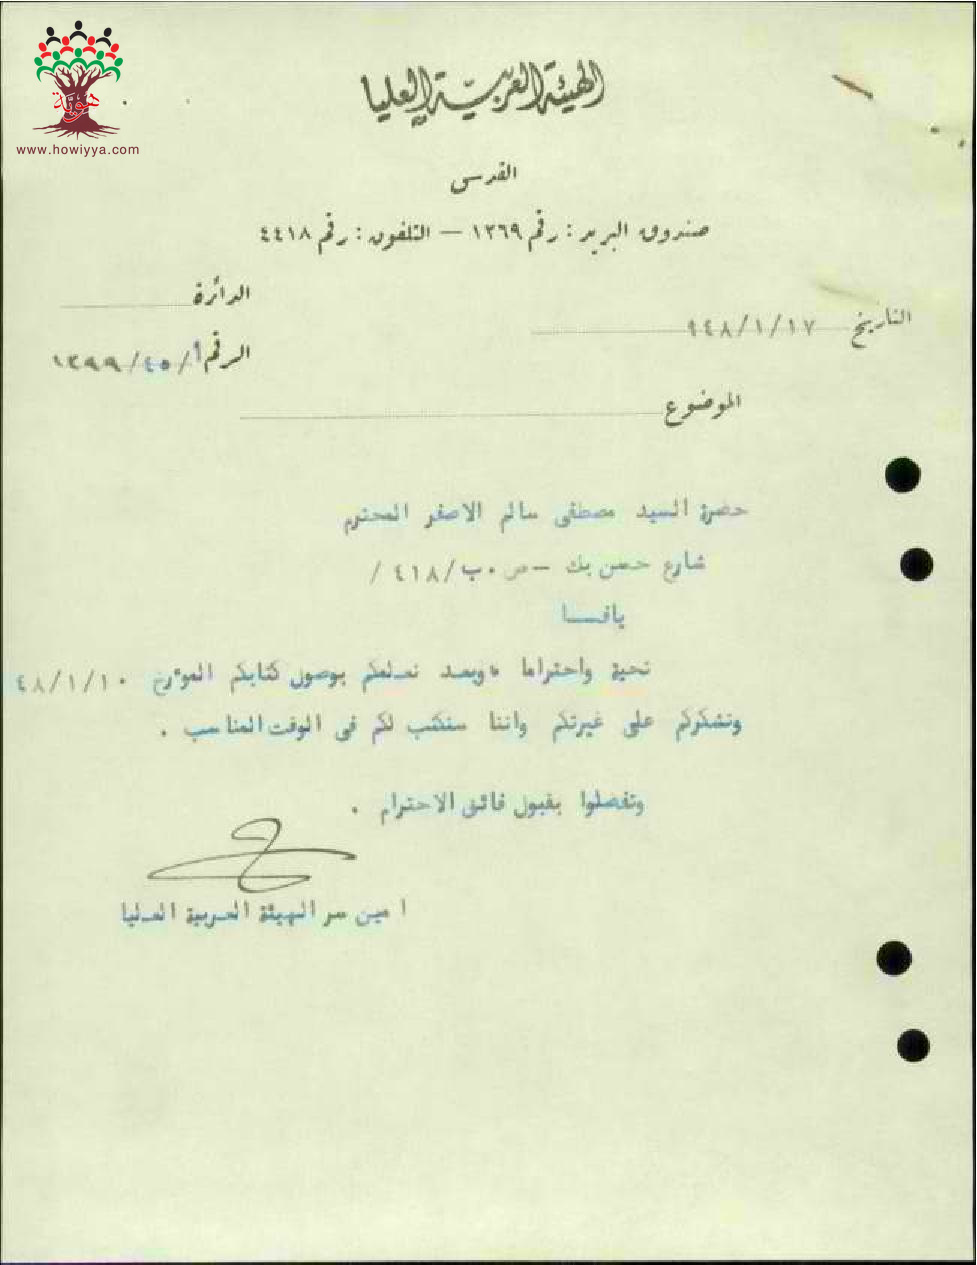 هوية
www.howiyya.com
الهيئة العربية العليا
القدس
صندوق البريد : رقم ١٣٦٩ — التلفون : رقم ٤٤١٨
الدائرة
التاريخ ٩٤٨/١/١٧
الرقم أ/٤٥/١٣٩٩
الموضوع
حضرة السيد مصطفى سالم الاصفر المحترم
شارع حسن بك – ص ٠ب/٤١٨ /
يافـــا
تحية واحتراما ٠ وبعد نعلمكم بوصول كتابكم المؤرخ ٤٨/١/١٠
ونشكركم على غيرتكم واننا سنكتب لكم في الوقت المناسب .
وتفضلوا بقبول فائق الاحترام .
امين سر الهيئة العربية العليا